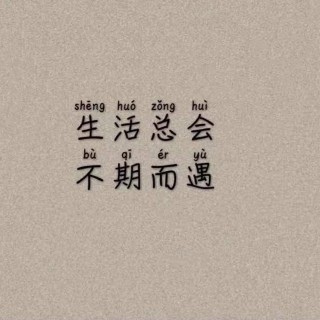 shēng huó zǒng huì
生活总会
bù qī ér yù
不期而遇